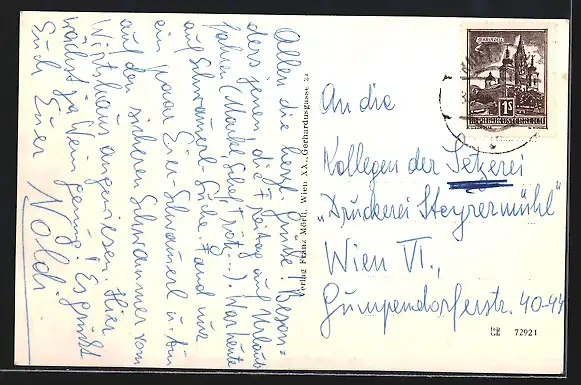 Allen die herzl. Grüße! Beson=
ders jenen die Freitag auf Urlaub
fahren (Markl, Schef, Trötz...). War heute
auf Schwammerl-Suche + fand nur
ein paar Eier-Schwammerl u. bin
auf den sicheren Schwammer vom
Wirtshaus angewiesen. Hier
wächst ja Wein genug! Es grüßt
Euch Euer Noldi
Verlag Franz Mörtl, Wien XX., Gerhardusgasse 24
An die
Kollegen der Setzerei
"Druckerei Steyrermühl"
Wien VI.,
Gumpendorferstr. 40-44
MARIAZELL
1S
REPUBLIK ÖSTERREICH
72921